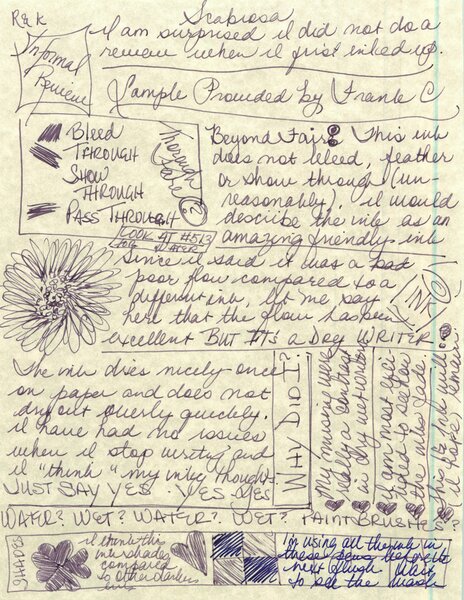 R & K
Scabiosa
Informal
Review
I am surprised I did not do a
review when I first inked up.
Sample Provided by Frank C
BLEED
THROUGH
SHOW
THROUGH
PASS THROUGH
LOOK AT #513
Beyond Fair! This ink
does not bleed, feather
or show through (un-
reasonably). I would
describe the ink as an
amazing friendly ink
Since I said it was a bad
poor flow compared to a
different ink, let me say
here that the flow has been
excellent BUT IT'S A DRY WRITER
The ink dries nicely once
on paper and does not
dry out overly quickly.
I have had no issues
when I stop writing and
I "think" my inky thoughts.
JUST SAY YES. YES. YES
WHY DID I?
I am most
to see how
the ink fade
WATER? WET? WATER? WET? PAINT BRUSH
SHADES
I think the
ink shades
compared
to other darker
inks
I'm using all the ink in
these pens before the
next flush. Want
to see the